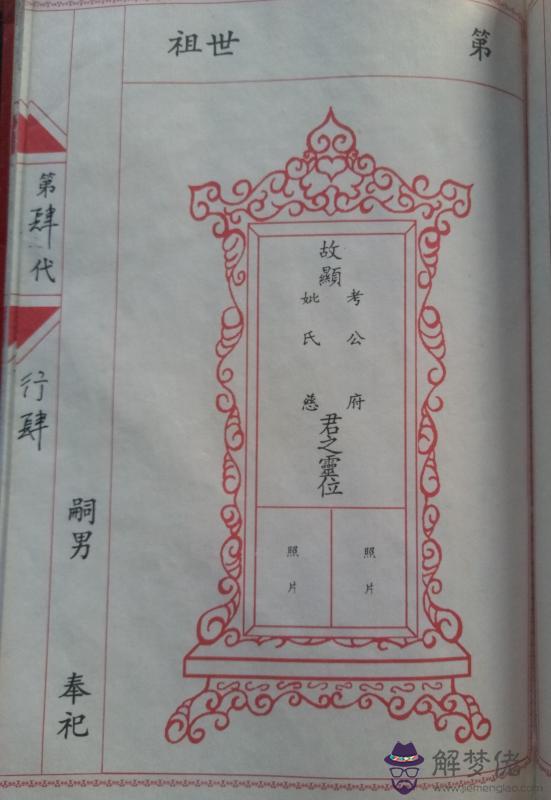 第　世祖
故顯
考公府
妣氏慈
君之靈位
照片
照片
第肆代
行肆
嗣男
奉祀
解梦佬
www.jiemenglao.com